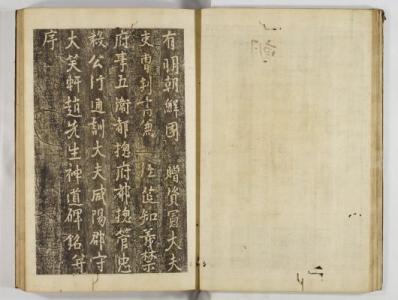 有明朝鮮國 贈資憲大夫
吏曹判書兼 知義禁
府事五衛都摠府都摠管忠
毅公行通訓大夫咸陽郡守
大笑軒趙先生神道碑銘并
序